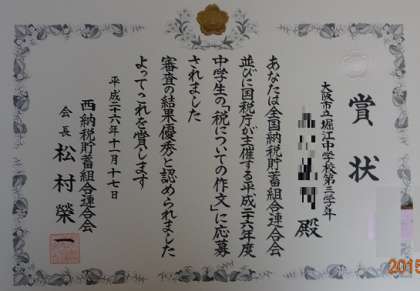 賞状
大阪市立堀江中学校第三学年
殿
あなたは全国納税貯蓄組合連合会
並びに国税庁が主催する平成二十六年度
中学生の「税についての作文」に応募
されました
審査の結果優秀と認められました
よってこれを賞します
平成二十六年十一月十七日
西納税貯蓄組合連合会
会長 松村榮一
2015